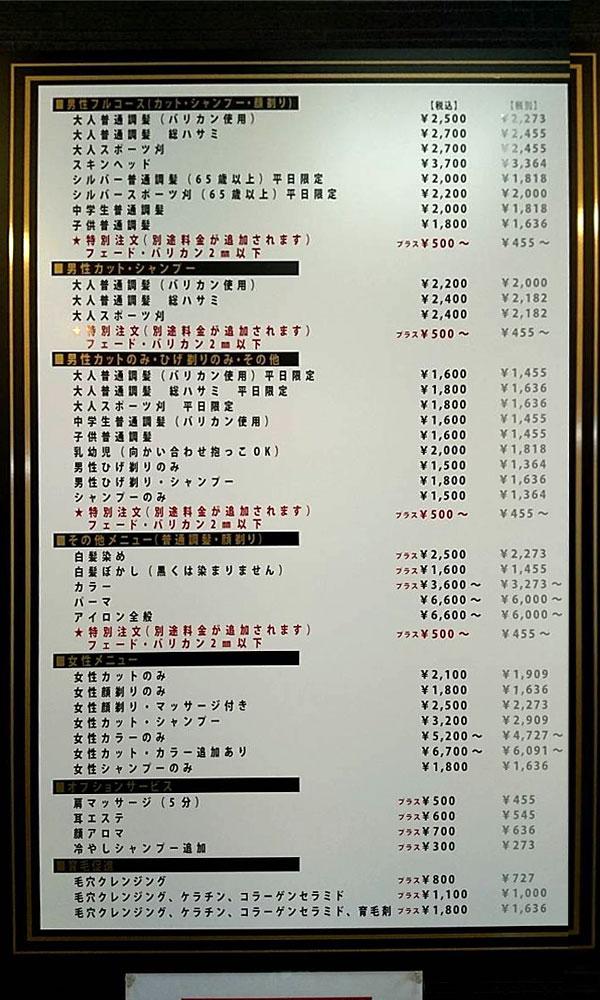 ■男性フルコース(カット・シャンプー・顔剃り) 【税込】 【税別】
大人普通調髪（バリカン使用） ¥2,500 ¥2,273
大人普通調髪　総ハサミ ¥2,700 ¥2,455
大人スポーツ刈 ¥2,700 ¥2,455
スキンヘッド ¥3,700 ¥3,364
シルバー普通調髪（65歳以上）平日限定 ¥2,000 ¥1,818
シルバースポーツ刈（65歳以上）平日限定 ¥2,200 ¥2,000
中学生普通調髪 ¥2,000 ¥1,818
子供普通調髪 ¥1,800 ¥1,636
★特別注文(別途料金が追加されます) プラス¥500～ ¥455～
フェード・バリカン2㎜以下
■男性カット・シャンプー
大人普通調髪（バリカン使用） ¥2,200 ¥2,000
大人普通調髪　総ハサミ ¥2,400 ¥2,182
大人スポーツ刈 ¥2,400 ¥2,182
★特別注文(別途料金が追加されます) プラス¥500～ ¥455～
フェード・バリカン2㎜以下
■男性カットのみ・ひげ剃りのみ・その他
大人普通調髪（バリカン使用）平日限定 ¥1,600 ¥1,455
大人普通調髪　総ハサミ　平日限定 ¥1,800 ¥1,636
大人スポーツ刈　平日限定 ¥1,800 ¥1,636
中学生普通調髪（バリカン使用） ¥1,600 ¥1,455
子供普通調髪 ¥1,600 ¥1,455
乳幼児（向かい合わせ抱っこOK） ¥2,000 ¥1,818
男性ひげ剃りのみ ¥1,500 ¥1,364
男性ひげ剃り・シャンプー ¥1,800 ¥1,636
シャンプーのみ ¥1,500 ¥1,364
★特別注文(別途料金が追加されます) プラス¥500～ ¥455～
フェード・バリカン2㎜以下
■その他メニュー(普通調髪・顔剃り)
白髪染め プラス¥2,500 ¥2,273
白髪ぼかし（黒くは染まりません） プラス¥1,600 ¥1,455
カラー プラス¥3,600～ ¥3,273～
パーマ ¥6,600～ ¥6,000～
アイロン全般 ¥6,600～ ¥6,000～
★特別注文(別途料金が追加されます) プラス¥500～ ¥455～
フェード・バリカン2㎜以下
■女性メニュー
女性カットのみ ¥2,100 ¥1,909
女性顔剃りのみ ¥1,800 ¥1,636
女性顔剃り・マッサージ付き ¥2,500 ¥2,273
女性カット・シャンプー ¥3,200 ¥2,909
女性カラーのみ ¥5,200～ ¥4,727～
女性カット・カラー追加あり ¥6,700～ ¥6,091～
女性シャンプーのみ ¥1,800 ¥1,636
■オプションサービス
肩マッサージ（5分） プラス¥500 ¥455
耳エステ プラス¥600 ¥545
顔アロマ プラス¥700 ¥636
冷やしシャンプー追加 プラス¥300 ¥273
■育毛促進
毛穴クレンジング プラス¥800 ¥727
毛穴クレンジング、ケラチン、コラーゲンセラミド プラス¥1,100 ¥1,000
毛穴クレンジング、ケラチン、コラーゲンセラミド、育毛剤 プラス¥1,800 ¥1,636